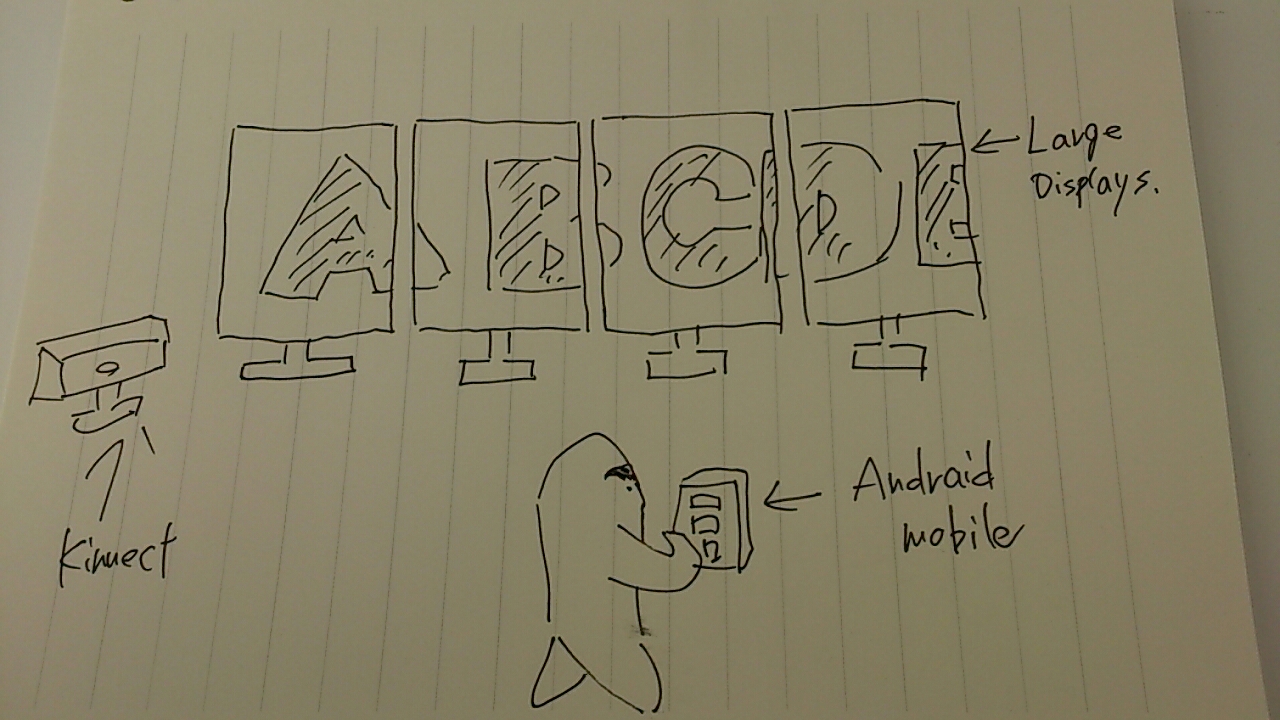 A B C D E
Large
Displays.
Kinnect
Andraid
mobile